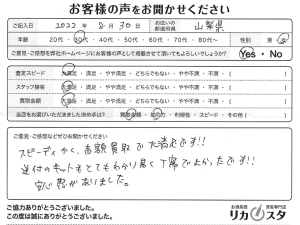 お客様の声をお聞かせください
ご記入日 2022年 8月 30日 お住いの都道府県 山梨県
年齢 20代・30代・40代・50代・60代・70代・80代〜 性別 男・女
ご意見・ご感想を弊社ホームページにお客様の声として掲載させて頂いてもよろしいでしょうか? Yes・No
査定スピード 大満足・満足・やや満足・どちらでもない・やや不満・不満・( )
スタッフ接客 大満足・満足・やや満足・どちらでもない・やや不満・不満・( )
買取金額 大満足・満足・やや満足・どちらでもない・やや不満・不満・( )
当店をお選びいただきました決め手は? 買取金額・対応力・利便性・スピード・その他( )
ご意見・ご感想などぜひお聞かせください
スピーディかつ、高額買取で大満足です!!
送付のキットもとてもわかり易く丁寧でよかったです!!
安心感がありました。
ご協力ありがとうございました。
この度は誠にありがとうございました。
お酒高価買取専門店
リカスタ